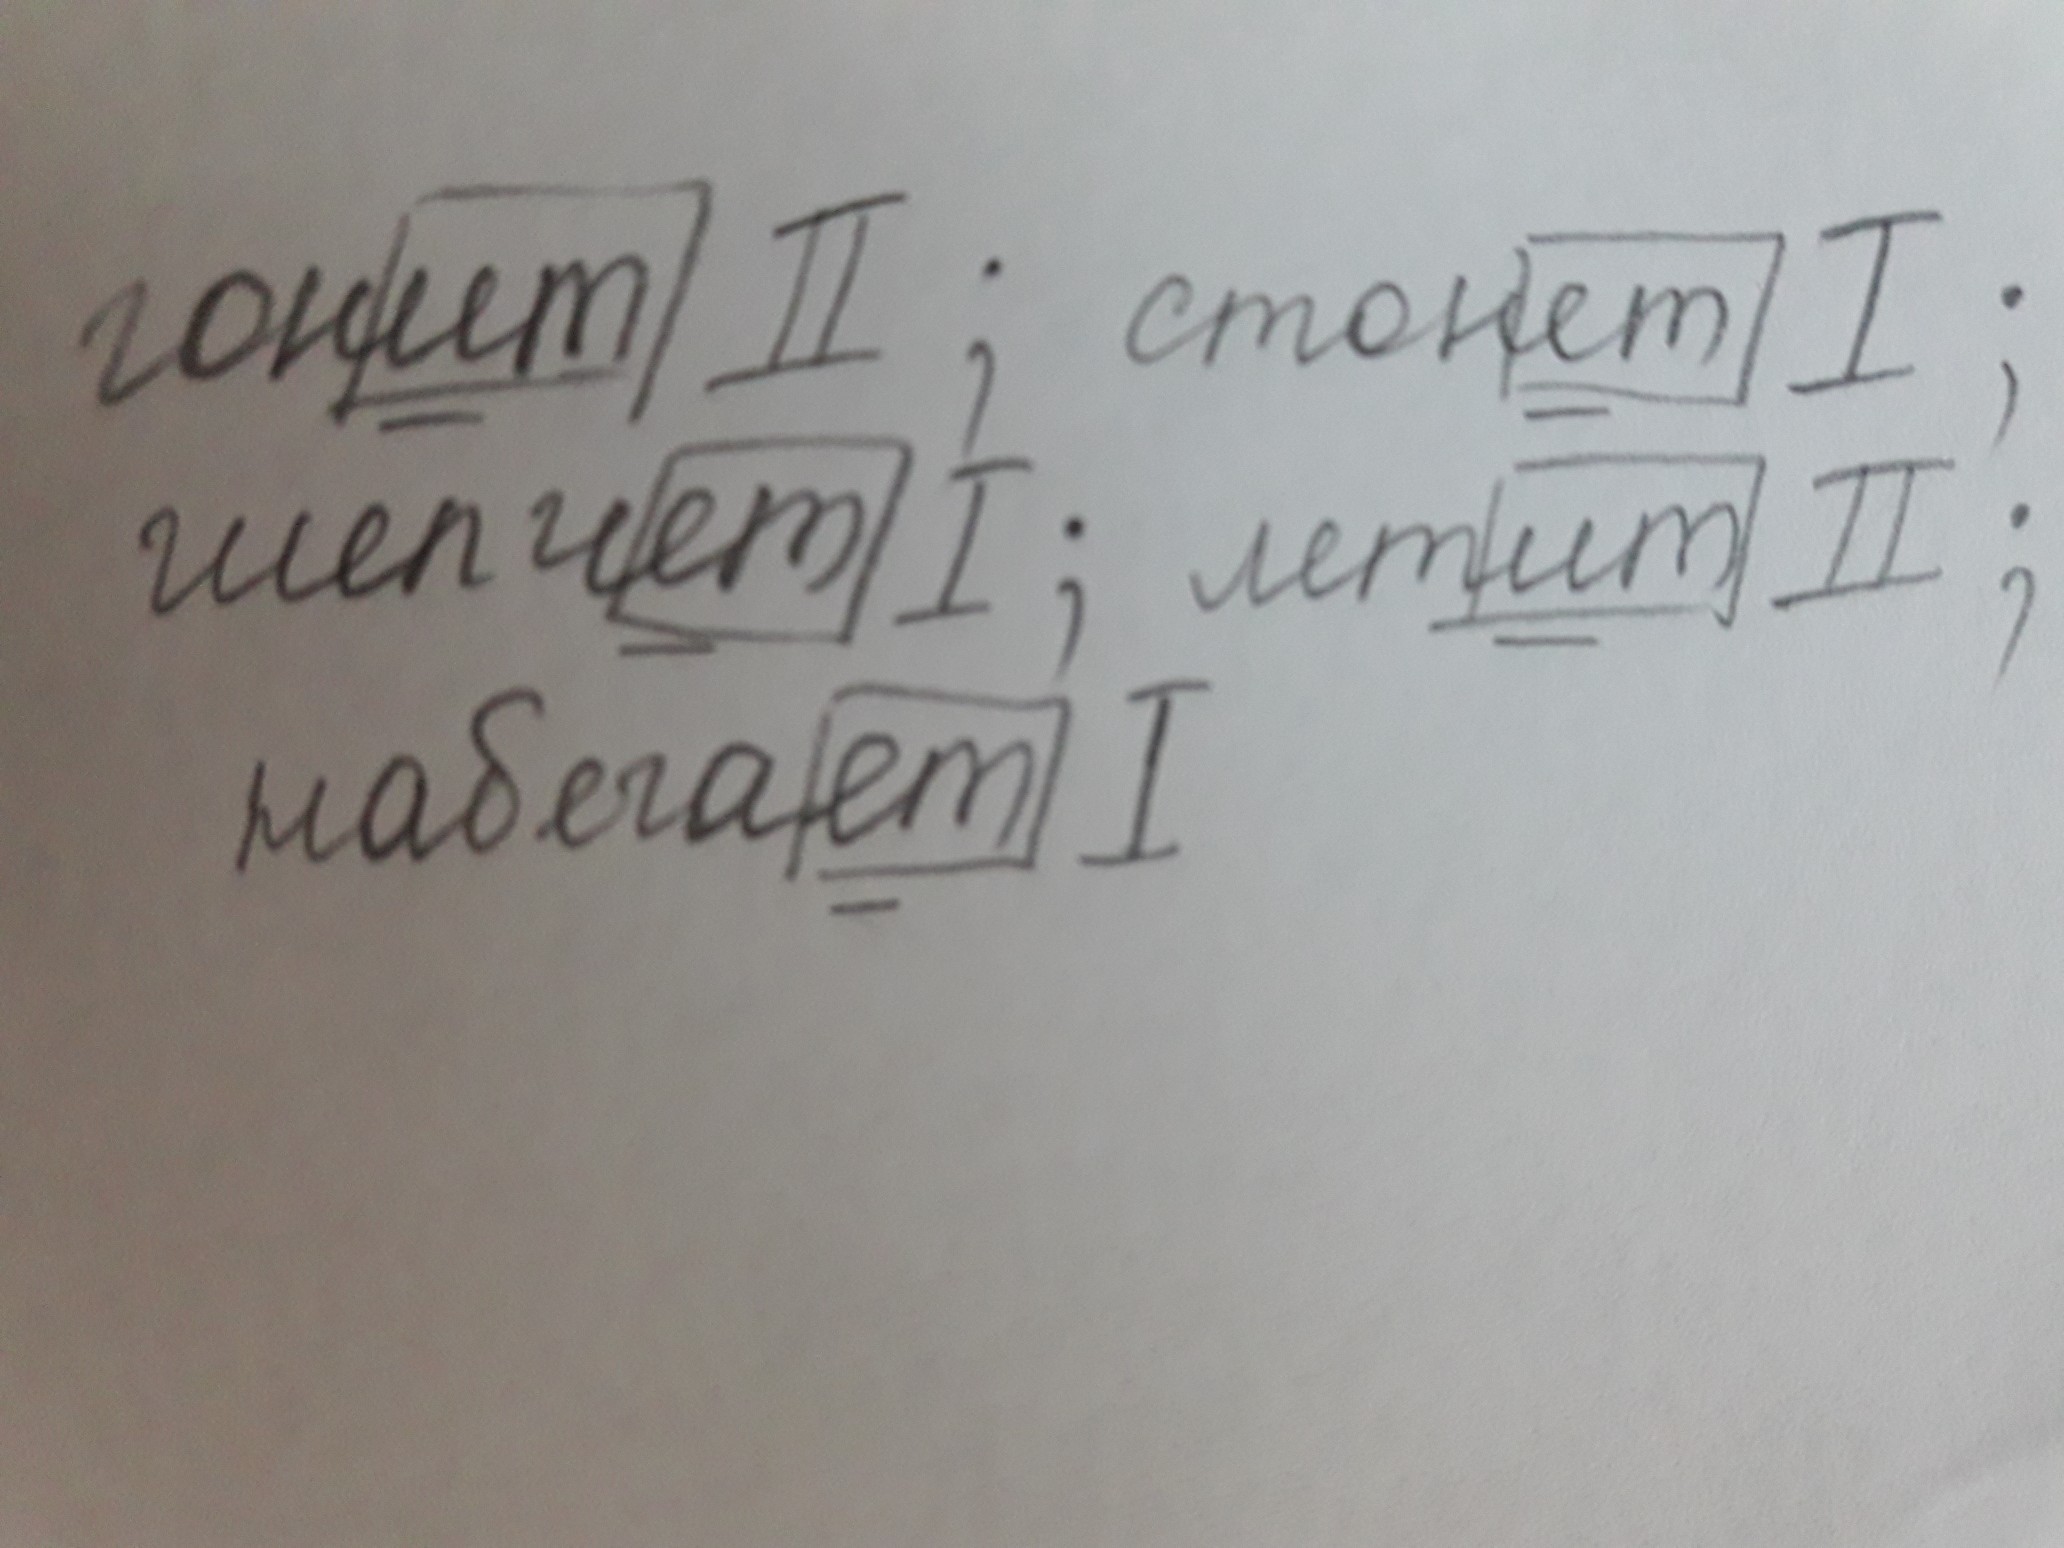 гонит II; стонет I;
шепчет I; летит II;
набегает I